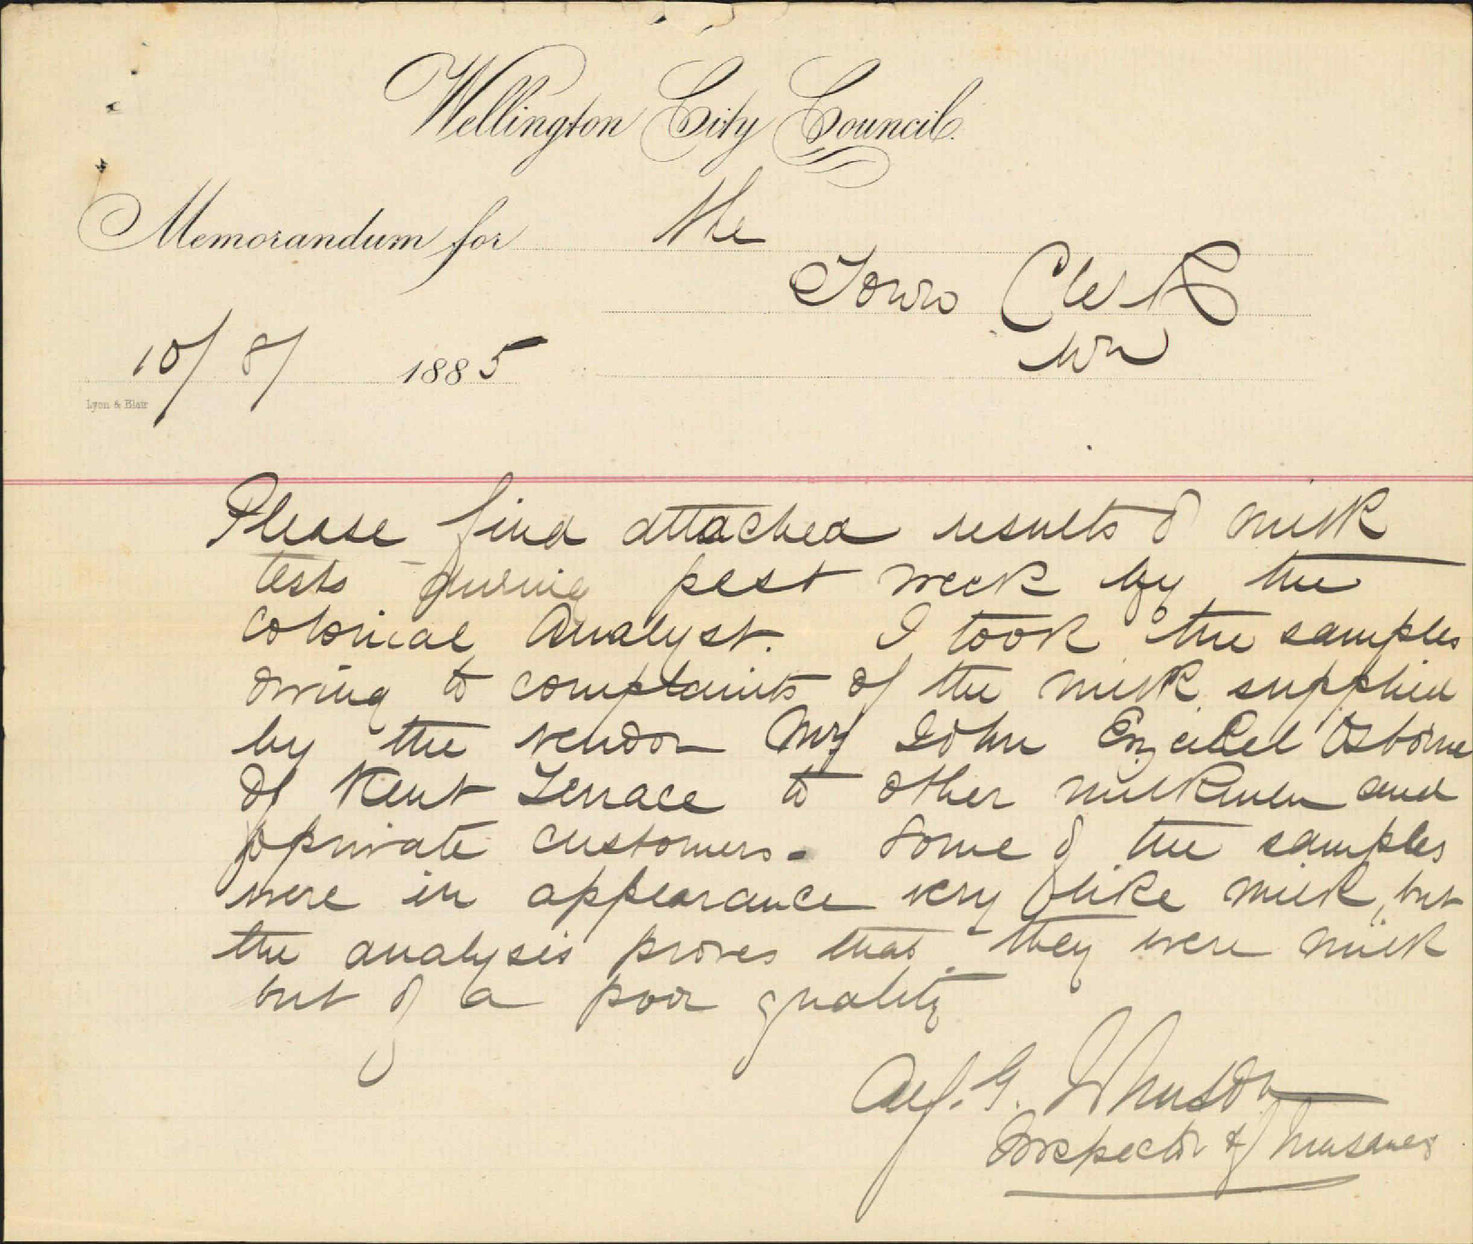 Wellington City Council.
Memorandum for the
Town Clerk
Wn
10/8/1885
Lyon & Blair
Please find attached results of milk
tests during past week by the
Colonial Analyst. I took the samples
owing to complaints of the milk supplied
by the vendor Mr John Ezeikel Osborne
of Kent Terrace to other milkmen and
private customers. Some of the samples
were in appearance very like milk, but
the analysis proves that they were milk
but of a poor quality
Alf. G. Johnston
Inspector of Nuisances